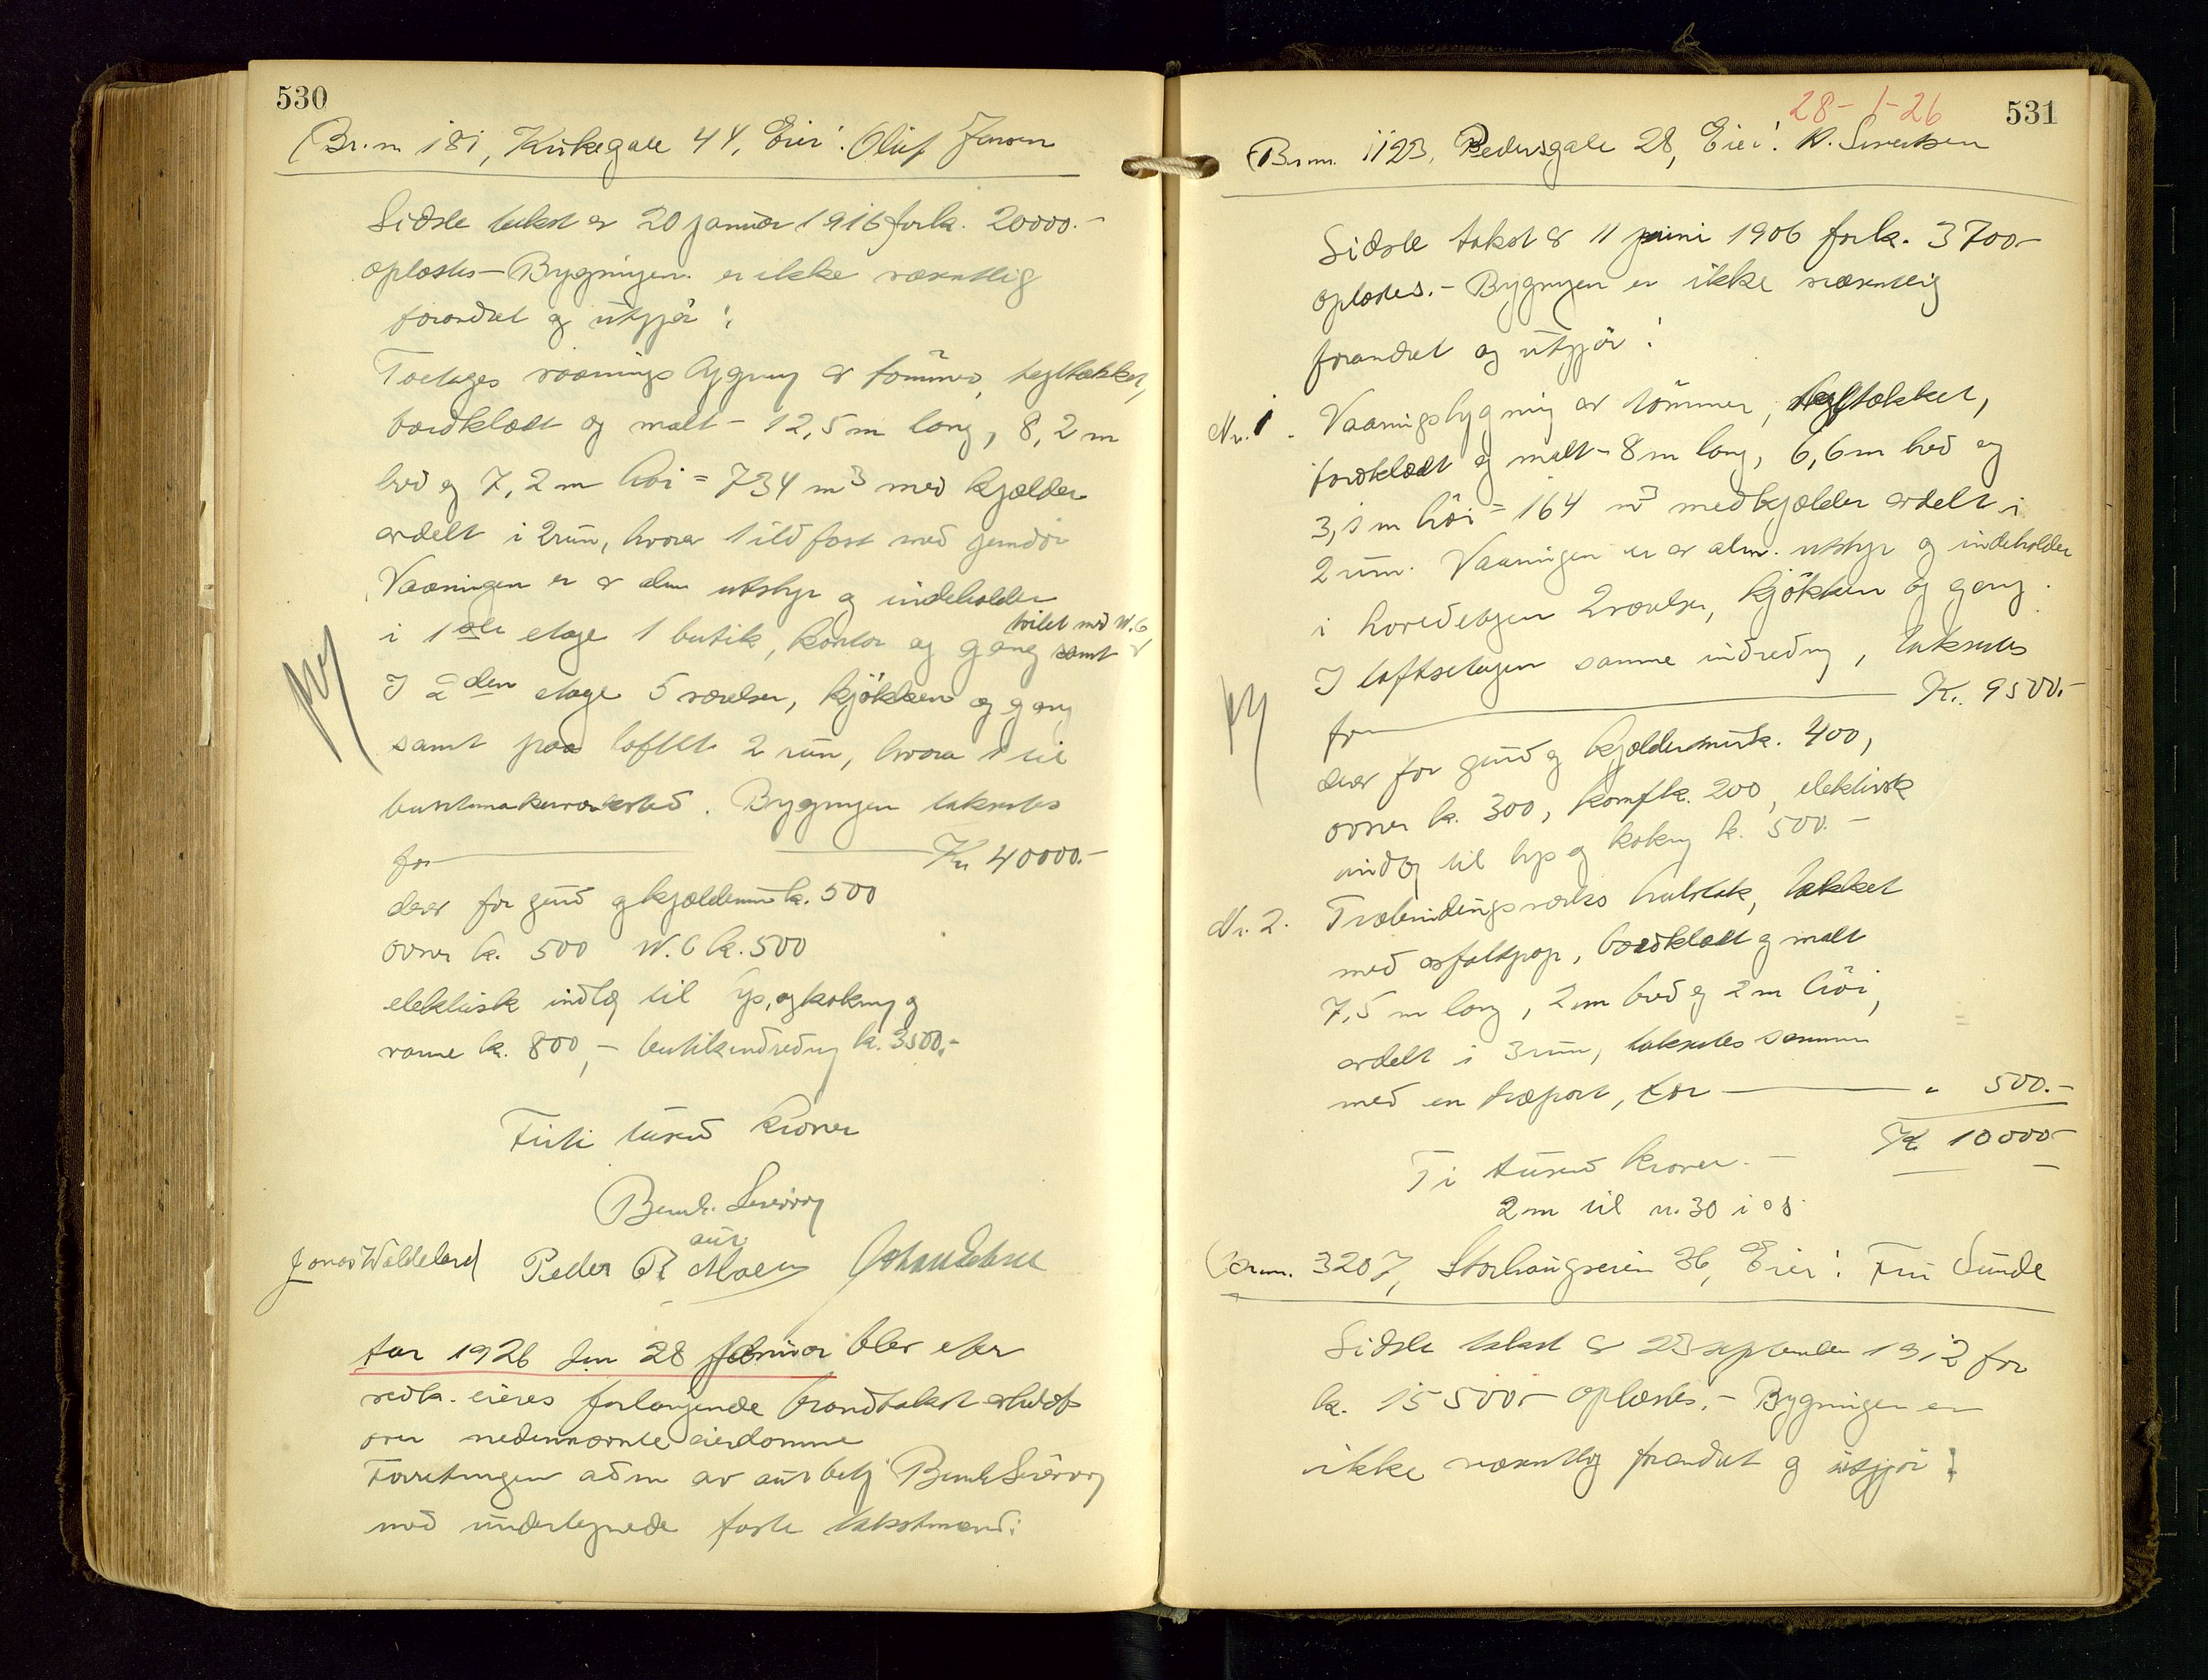 530
(Br.nr 181, Kirkegate 44, Eier: Oluf Jensen
Sidste takst er 20 januar 1916 for k. 20000.-
oplæstes - Bygningen er ikke væsentlig
forandret og utgjør:
Toetages vaaningsbygning av tømmer, tegltækket,
bordklædt og malt - 12,5 m lang, 8,2 m
bred og 7,2 m høi = 734 m³ med kjælder
avdelt i 2 rum, hvorav 1 ildfast med jerndør
Vaaningen er av alm utstyr og indeholder
i 1ste etage 1 butik, kontor og gang samt
toilet med W.C
I 2den etage 5 værelser, kjøkken og gang
samt paa loftet 2 rum, hvorav 1 til
buntmakerverksted. Bygningen takseres
for Kr 40000.-
derav for grund og kjældermur k. 500
ovner k. 500 W.C k. 500
elektrisk indlæg til lys, og kokning og
varme k. 800,- butikindredning k. 3500.-
Firti tusind kroner
Bernh. Siverög
aut.
Jonas Waldeland Peder R. Moen
Aar 1926 den 28 februar blev efter
vedk. eieres forlangende brandtakst avholdt
over nedennævnte eiendomme
Forretningen adm av aut betj Bernh Siverög
med undertegnede faste takstmænd:
28-1-26
531
(Br.nr. 1123, Pedersgate 28, Eier: R. Sivertsen
Sidste takst er 11 juni 1906 for k. 3700-
oplæstes. - Bygningen er ikke væsentlig
forandret og utgjør:
Nr. 1. Vaaningsbygning av tømmer, tegltækket,
bordklædt og malt - 8 m lang, 6,6 m bred og
3,1 m høi = 164 m³ med kjælder avdelt i
2 rum. Vaaningen er av alm. utstyr og indeholder
i hovedetagen 2 værelser, kjøkken og gang.
I loftsetagen samme indredning, takseres
for Kr. 9500.-
derav for grund og kjældermur k. 400,
ovner k. 300, komf k. 200, elektrisk
indlæg til lys og kokning k. 500.-
Nr. 2. Træbindingsverks halvtak, tækket
med asfaltpap, bordklædt og malt
7,5 m lang, 2 m bred og 2 m høi,
avdelt i 3 rum, takseres sammen
med en træport, for " 500.-
Kr 10000-
Ti tusind kroner. -
2 m til n. 30 i os
(Br.nr. 3207, Storhaugveien 36, Eier: Fru Sunde
Sidste takst er 23 september 1912 for
k. 15500- oplæstes. - Bygningen er
ikke væsentlig forandret og utgjør: